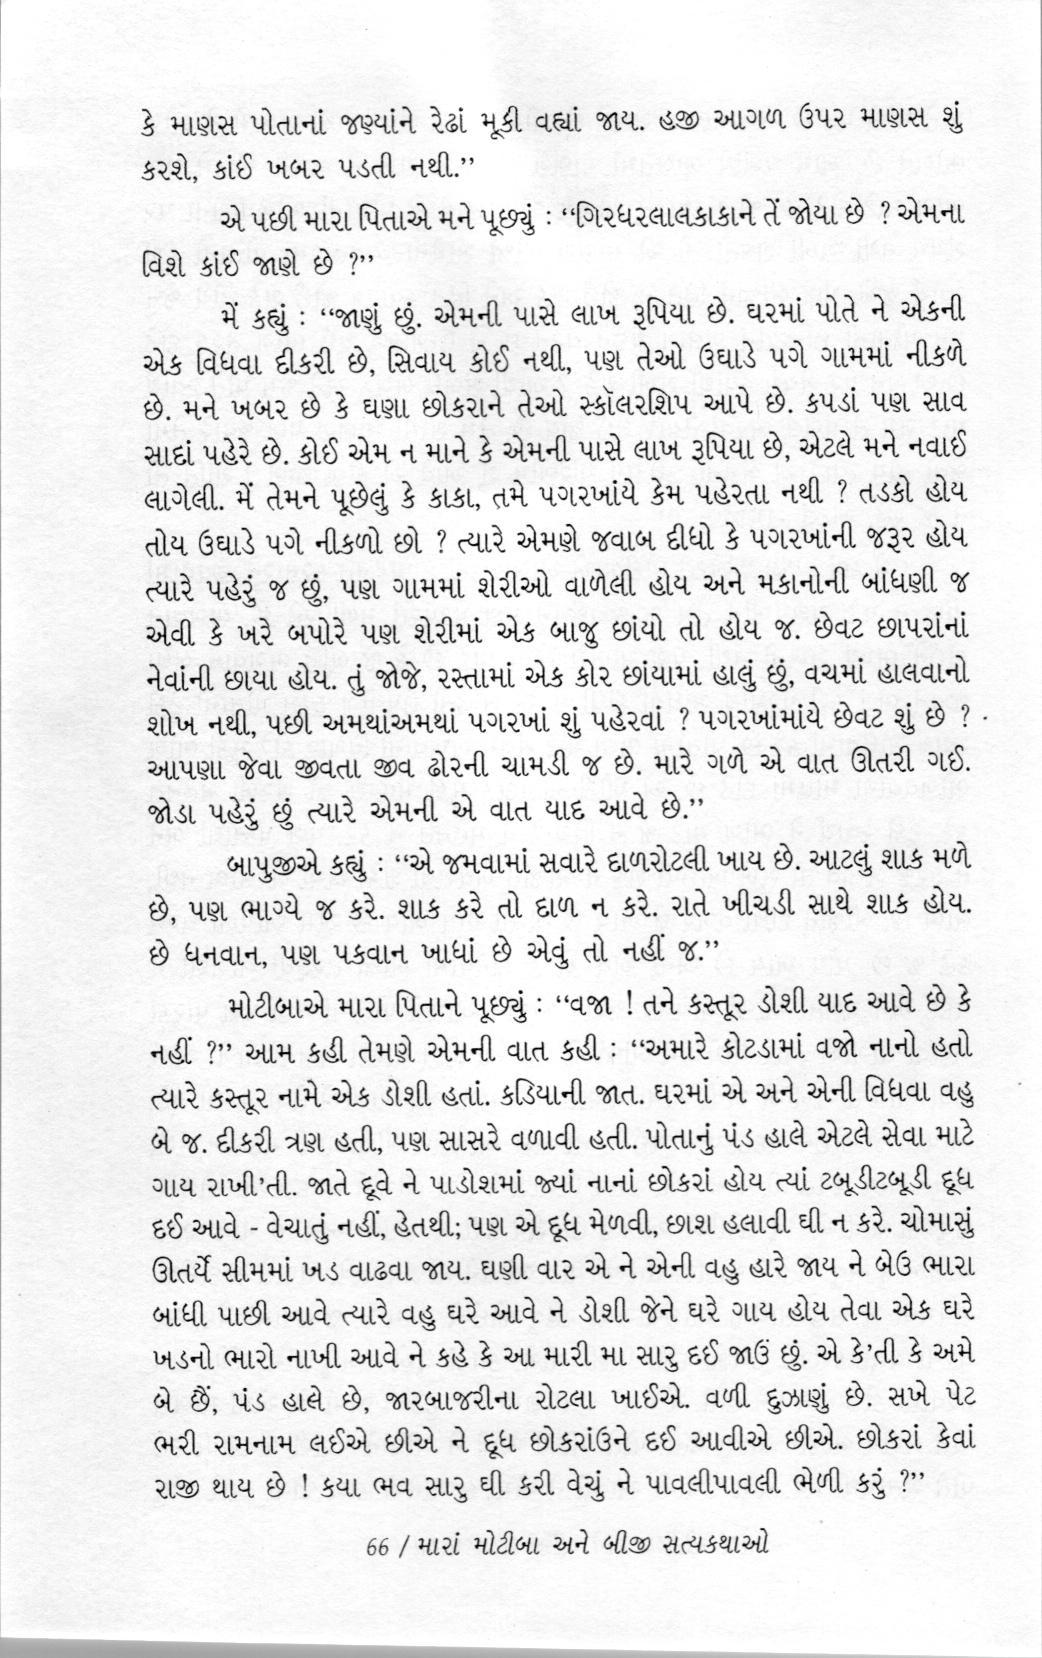 કે માણસ પોતાનાં જણ્યાંને રેઢાં મૂકી વહ્યાં જાય. હજી આગળ ઉપર માણસ શું
કરશે, કાંઈ ખબર પડતી નથી.’’
એ પછી મારા પિતાએ મને પૂછ્યું : ‘‘ગિરધરલાલકાકાને તેં જોયા છે ? એમના
વિશે કાંઈ જાણે છે ?’’
મેં કહ્યું : ‘‘જાણું છું. એમની પાસે લાખ રૂપિયા છે. ઘરમાં પોતે ને એકની
એક વિધવા દીકરી છે, સિવાય કોઈ નથી, પણ તેઓ ઉઘાડે પગે ગામમાં નીકળે
છે. મને ખબર છે કે ઘણા છોકરાને તેઓ સ્કૉલરશિપ આપે છે. કપડાં પણ સાવ
સાદાં પહેરે છે. કોઈ એમ ન માને કે એમની પાસે લાખ રૂપિયા છે, એટલે મને નવાઈ
લાગેલી. મેં તેમને પૂછેલું કે કાકા, તમે પગરખાંયે કેમ પહેરતા નથી ? તડકો હોય
તોય ઉઘાડે પગે નીકળો છો ? ત્યારે એમણે જવાબ દીધો કે પગરખાંની જરૂર હોય
ત્યારે પહેરું જ છું, પણ ગામમાં શેરીઓ વાળેલી હોય અને મકાનોની બાંધણી જ
એવી કે ખરે બપોરે પણ શેરીમાં એક બાજુ છાંયો તો હોય જ. છેવટ છાપરાંનાં
નેવાંની છાયા હોય. તું જોજે, રસ્તામાં એક કોર છાંયામાં હાલું છું, વચમાં હાલવાનો
શોખ નથી, પછી અમથાંઅમથાં પગરખાં શું પહેરવાં ? પગરખાંમાંયે છેવટ શું છે ?
આપણા જેવા જીવતા જીવ ઢોરની ચામડી જ છે. મારે ગળે એ વાત ઊતરી ગઈ.
જોડા પહેરું છું ત્યારે એમની એ વાત યાદ આવે છે.’’
બાપુજીએ કહ્યું : ‘‘એ જમવામાં સવારે દાળરોટલી ખાય છે. આટલું શાક મળે
છે, પણ ભાગ્યે જ કરે. શાક કરે તો દાળ ન કરે. રાતે ખીચડી સાથે શાક હોય.
છે ધનવાન, પણ પકવાન ખાધાં છે એવું તો નહીં જ.’’
મોટીબાએ મારા પિતાને પૂછ્યું : ‘‘વજા ! તને કસ્તૂર ડોશી યાદ આવે છે કે
નહીં ?’’ આમ કહી તેમણે એમની વાત કહી : ‘‘અમારે કોટડામાં વજો નાનો હતો
ત્યારે કસ્તૂર નામે એક ડોશી હતાં. કડિયાની જાત. ઘરમાં એ અને એની વિધવા વહુ
બે જ. દીકરી ત્રણ હતી, પણ સાસરે વળાવી હતી. પોતાનું પંડ હાલે એટલે સેવા માટે
ગાય રાખી’તી. જાતે દૂવે ને પાડોશમાં જ્યાં નાનાં છોકરાં હોય ત્યાં ટબૂડીટબૂડી દૂધ
દઈ આવે - વેચાતું નહીં, હેતથી; પણ એ દૂધ મેળવી, છાશ હલાવી ઘી ન કરે. ચોમાસું
ઊતર્યે સીમમાં ખડ વાઢવા જાય. ઘણી વાર એ ને એની વહુ હારે જાય ને બેઉ ભારા
બાંધી પાછી આવે ત્યારે વહુ ઘરે આવે ને ડોશી જેને ઘરે ગાય હોય તેવા એક ઘરે
ખડનો ભારો નાખી આવે ને કહે કે આ મારી મા સારુ દઈ જાઉં છું. એ કે’તી કે અમે
બે છૈં, પંડ હાલે છે, જારબાજરીના રોટલા ખાઈએ. વળી દુઝાણું છે. સખે પેટ
ભરી રામનામ લઈએ છીએ ને દૂધ છોકરાંઉને દઈ આવીએ છીએ. છોકરાં કેવાં
રાજી થાય છે ! કયા ભવ સારુ ઘી કરી વેચું ને પાવલીપાવલી ભેળી કરું ?’’
66 / મારાં મોટીબા અને બીજી સત્યકથાઓ